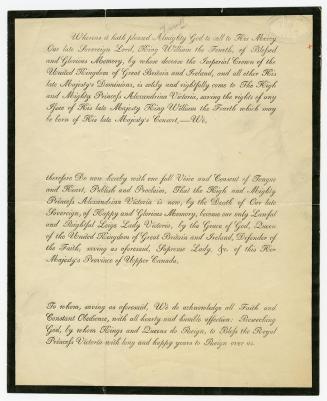 Whereas it hath pleased Almighty God to call to His Mercy
Our late Sovereign Lord, King William the Fourth, of Blessed
and Glorious Memory, by whose decease the Imperial Crown of the
United Kingdom of Great Britain and Ireland, and all other His
late Majesty's Dominions, is solely and rightfully come to The High
and Mighty Princess Alexandrina Victoria, saving the rights of any
Issue of His late Majesty King William the Fourth which may
be born of His late Majesty's Consort,—We,
therefore Do now hereby with one full Voice and Consent of Tongue
and Heart, Publish and Proclaim, That the High and Mighty
Princess Alexandrina Victoria is now, by the Death of Our late
Sovereign, of Happy and Glorious Memory, become our only Lawful
and Rightful Leige Lady Victoria, by the Grace of God, Queen
of the United Kingdom of Great Britain and Ireland, Defender of
the Faith, saving as aforesaid, Supreme Lady, &c. of this Her
Majesty's Province of Upper Canada,
To whom, saving as aforesaid, We do acknowledge all Faith and
Constant Obedience, with all hearty and humble affection: Beseeching
God, by whom Kings and Queens do Reign, to Bless the Royal
Princess Victoria with long and happy years to Reign over us.